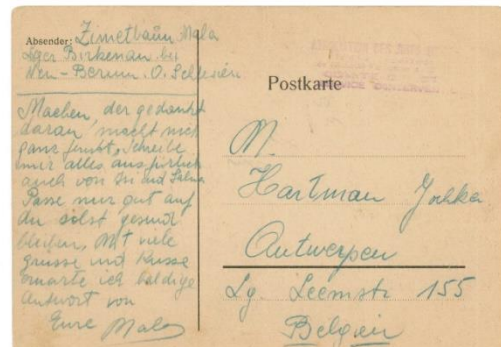 Absender: Zimetbaum Mala
Lager Birkenau bei
Neu-Berun. O. Schlesien
Machen, der gedankt
daran macht mich
ganz, Schreibe
mir alles ausfürlich
auch von Gi und Salma
Passe nur gut auf
du solst gesund
bleiben. Mit viele
grüsse und küsse
erwarte ich baldige
Antwort von
Eure Mala
Postkarte
M.
Hartman Jochka
Antwerpen
Lg. Leemstr 155
Belgien